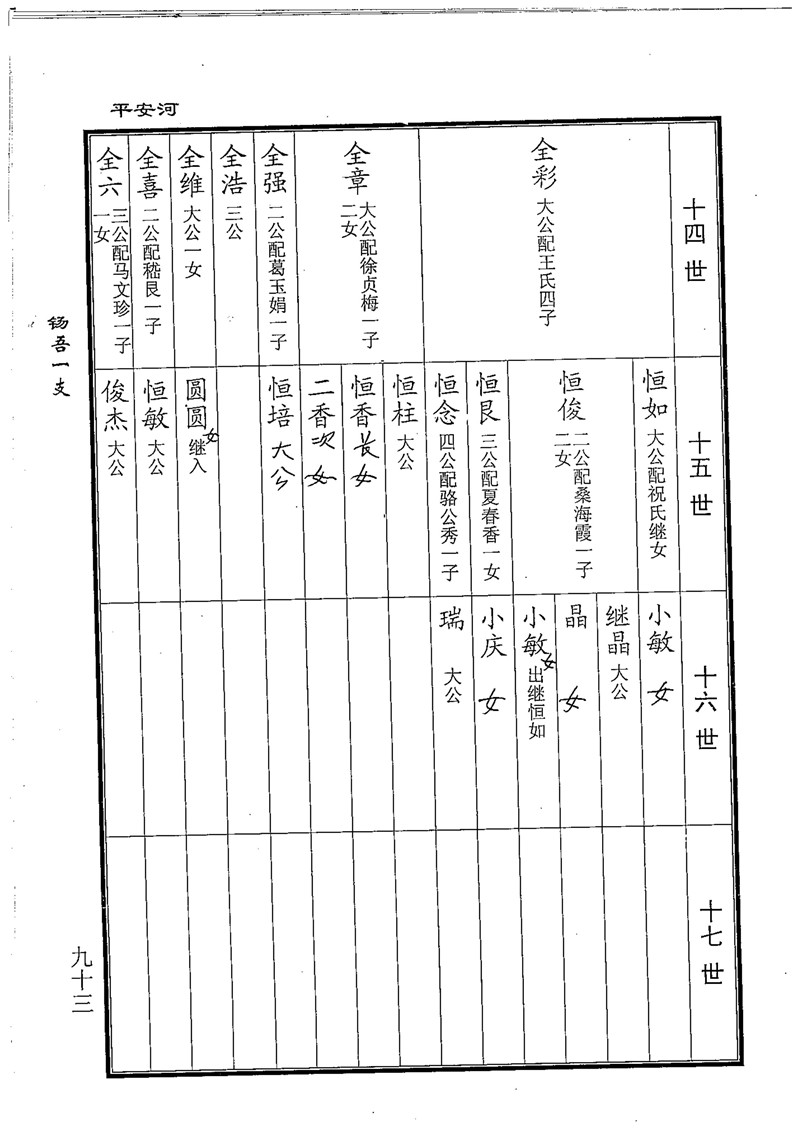 平安河
十四世
全彩 大公配王氏四子
全章 大公配徐贞梅一子二女
全强 二公配葛玉娟一子
全浩 三公
全维 大公一女
全喜 二公配嵇艮一子
全六 三公配马文珍一子一女
十五世
恒如 大公配祝氏继女
恒俊 二公配桑海霞一子二女
恒艮 三公配夏春香一女
恒念 四公配骆公秀一子
恒柱 大公
恒香长女
二香次女
恒培大公
圆圆女继入
恒敏 大公
俊杰 大公
十六世
小敏 女
继晶 大公
晶 女
小敏女出继恒如
小庆 女
瑞 大公
十七世
吾一支
九十三